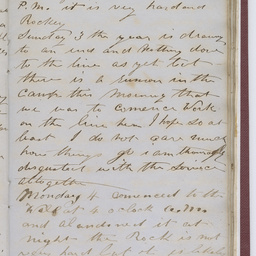 P.M. it is very hard and
Rockey
Sunday 3 the year is drawing
to an end and nothing done
to the line as yet but
there is a rumor in the
camp this morning that
we was to comence work
on the line here I hope so at
least I do not care much
how things go i am thoroughly
disgusted with the service
altogether
Monday 4 comenced to the
at 4 o clock a.m.
and abandoned it at
night the Rock is not
very hard but it is